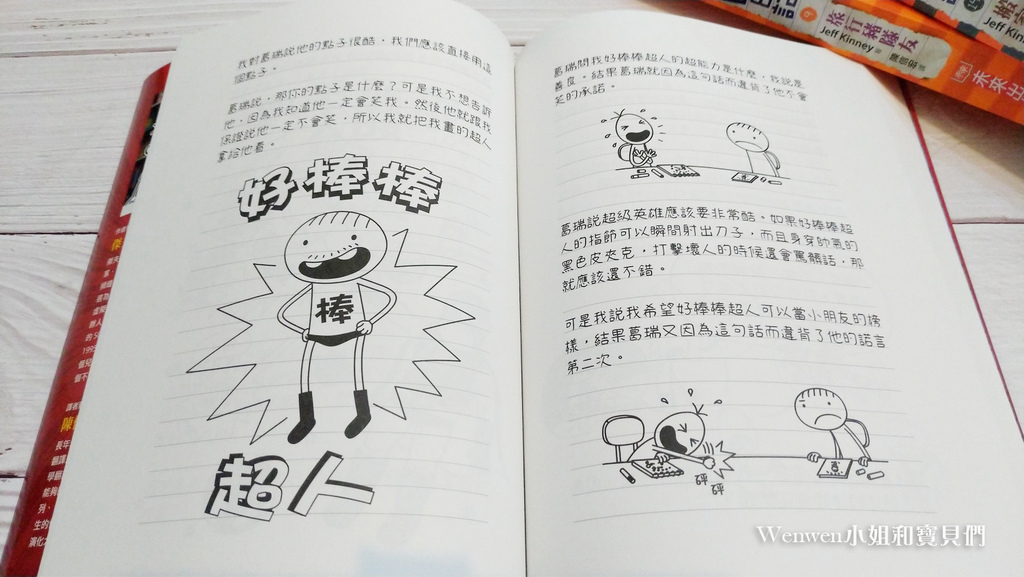 我對葛瑞說他的點子很酷，我們應該直接用這
個點子。
葛瑞說，那你的點子是什麼？可是我不想告訴
他，因為我知道他一定會笑我。然後他就跟我
保證說他一定不會笑，所以我就把我畫的超人
拿給他看。
好棒棒
棒
超人
葛瑞問我好棒棒超人的超能力是什麼，我說是
善良。結果葛瑞就因為這句話而違背了他不會
笑的承諾。
葛瑞說超級英雄應該要非常酷。如果好棒棒超
人的指節可以瞬間射出刀子，而且身穿帥氣的
黑色皮夾克，打擊壞人的時候還會罵髒話，那
就應該還不錯。
可是我說我希望好棒棒超人可以當小朋友的榜
樣，結果葛瑞又因為這句話而違背了他的諾言
第二次。
砰
砰
旅行豬隊友
Jeff Kinney
Jeff Kinney
未來出
Wenwen小姐和寶貝們